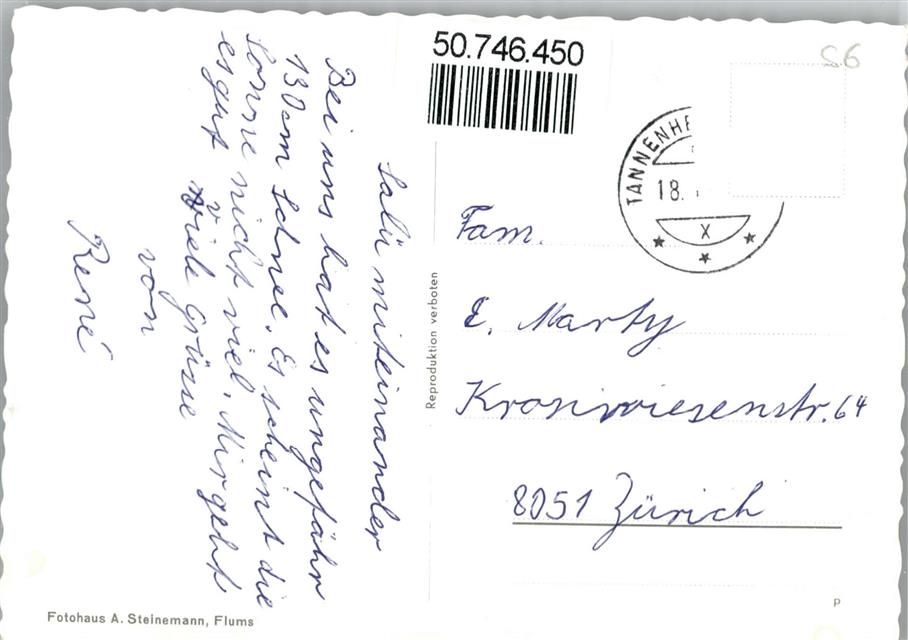 Salü miteinander
Bei uns hat es ungefähr
130cm Schnee. Es scheint die
Sonne nicht viel. Mir geht
es gut Viele Grüsse
von
René
Fotohaus A. Steinemann, Flums
Reproduktion verboten
50.746.450
S6
TANNENHE
18.
X
Fam.
E. Marty
Kronwiesenstr. 64
8051 Zürich
P